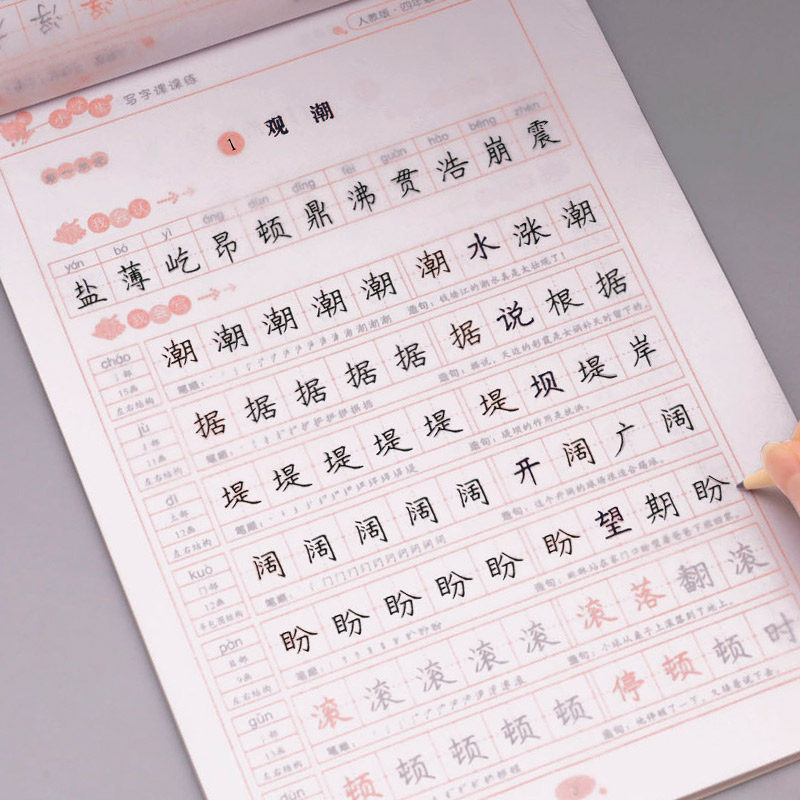 人教版·四年级
写字课课练
1 观潮
我会认
yán bó yì áng dùn dǐng fèi guàn hào bēng zhèn
盐 薄 屹 昂 顿 鼎 沸 贯 浩 崩 震
我会写
cháo
15画
左右结构
潮 潮 潮 潮 潮 潮 水 涨 潮
笔顺:
造句:钱塘江的潮水真是太壮观了!
jù
11画
左右结构
据 据 据 据 据 据 说 根 据
笔顺:
造句:据说,天边的彩霞是女娲补天时留下的。
dī
土部
12画
左右结构
堤 堤 堤 堤 堤 堤 坝 堤 岸
笔顺:
造句:堤坝的作用是抗洪。
kuò
门部
12画
半包围结构
阔 阔 阔 阔 阔 开 阔 广 阔
笔顺:
造句:这个开阔的球场很适合踢球。
pàn
目部
9画
左右结构
盼 盼 盼 盼 盼 盼 望 期 盼
笔顺:
gǔn
13画
左右结构
滚 滚 滚 滚 滚 滚 落 翻 滚
笔顺:
造句:小球从桌子上滚落到了地上。
dùn
顿 顿 顿 顿 顿 停 顿 顿 时
笔顺:
造句:他停顿了一下,又接着说下去。
3